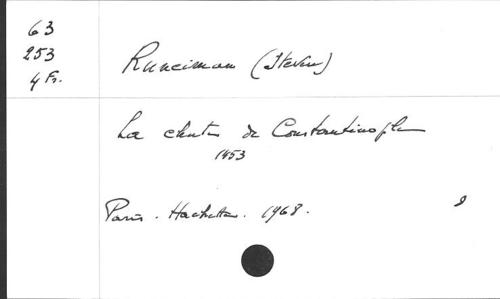 63
253
4 Fr.
Runciman (Steven)
La chute de Constantinople
1453
Paris. Hachette. 1968.
8